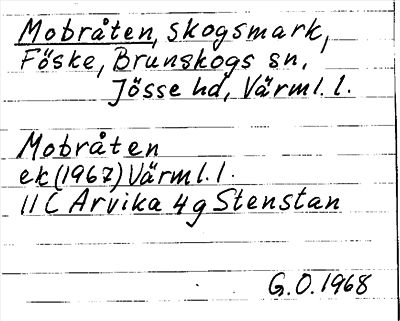 Mobråten, skogsmark,
Föske, Brunskogs sn.
Jösse hd, Värml. l.
Mobråten
ek (1967) Värml. l.
11 C Arvika 4 g Stenstan
G. O. 1968